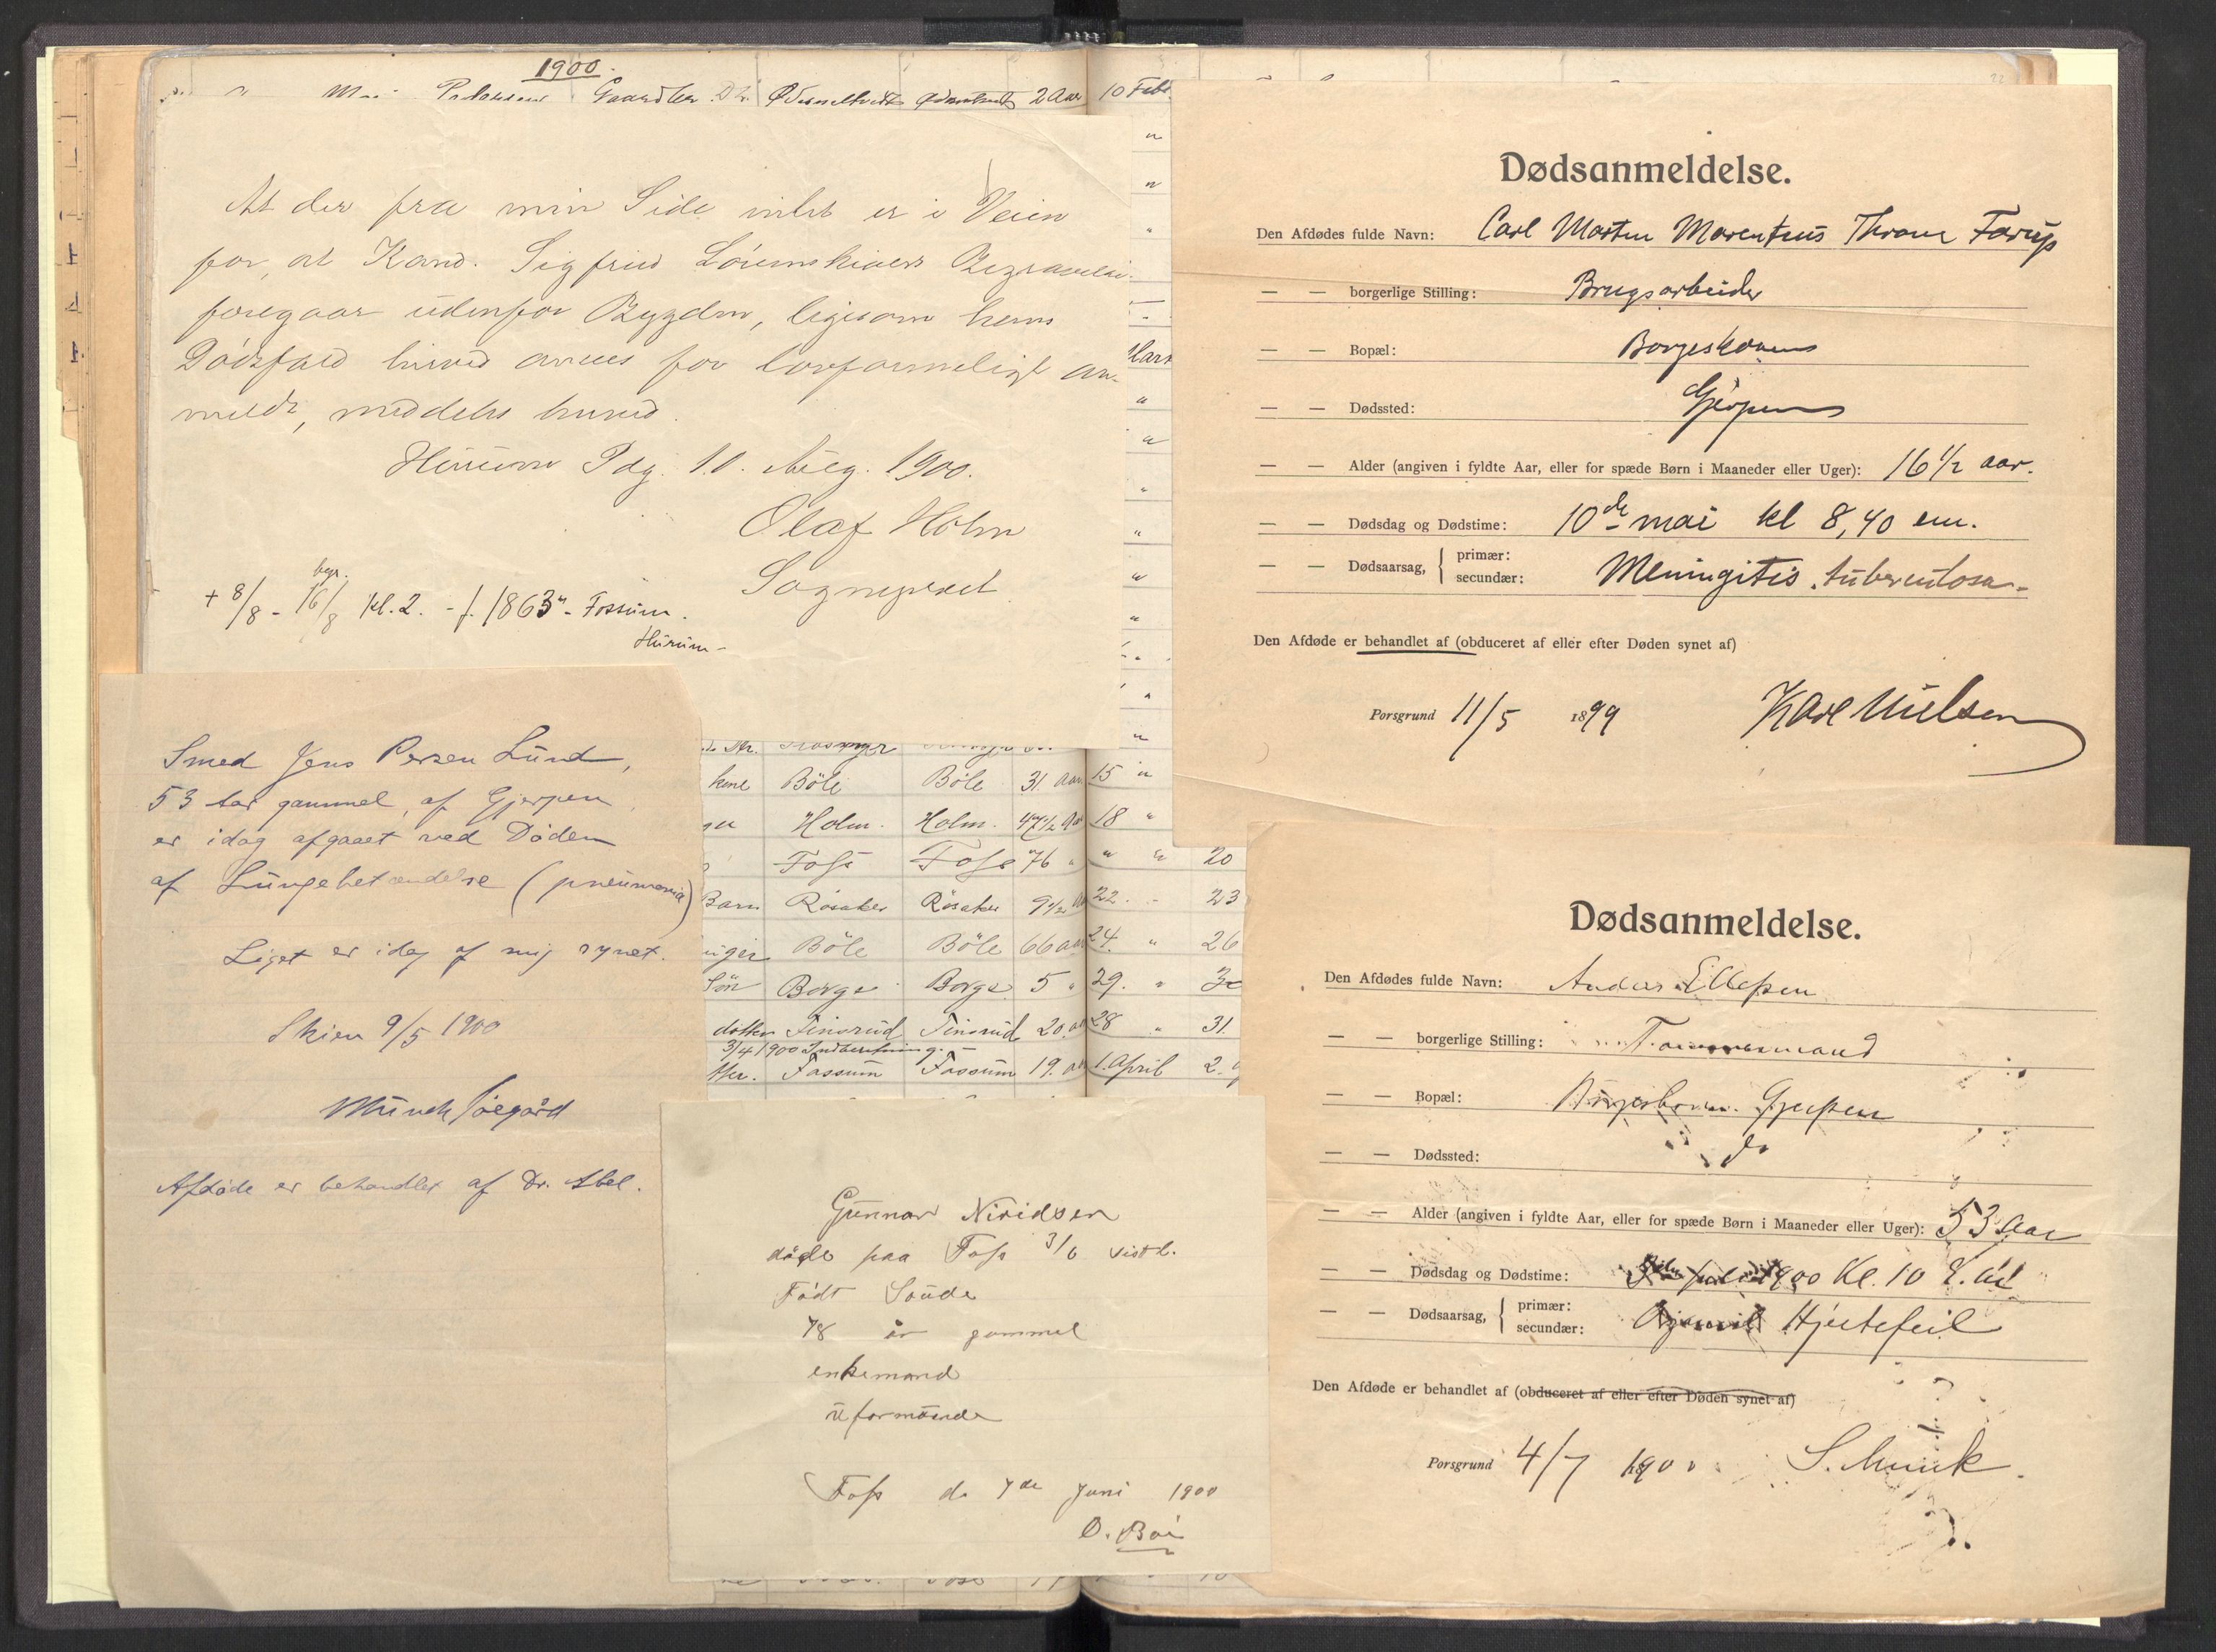 1900.
Gaardbr. 2 Aar 10 Febr.
At der fra min Side intet er i Veien
for, at Kand. Sigfred Lörenskiolds Begravelse
foregaar udenfor Bygden, ligesom hans
Dödsfald herved ansees for lovformeligt an-
meldt, meddeles herved.
Hurum Pdg. 10. Aug. 1900.
Olaf Holm
Sogneprest
begr.
+ 8/8 - 16/8 Kl. 2. - f. 1863 - Fossum.
Hurum -
Smed Jens Persen Lund,
53 Aar gammel, af Gjerpen,
er idag afgaaet ved Döden
af Lungebetændelse (pneumonia)
Liget er idag af mig synet.
Skien 9/5 1900
Munch Söegård
Afdöde er behandlet af Dr. Abel.
Böle Böle 31 Aar 15 "
Holm. Holm. 47 1/2 Aar 18 "
Foss Foss 76 " " " 20
Barn Rösaker Rösaker 9 1/2 22. " 23
Böle Böle 66 aar 24. " 26
Sön Borge Borge 5 " 29. " 30
datter Tinsrud Tinsrud 20. aar 28 " 31.
3/4 1900 Indberetning.
Fossum Fossum 19. aar 1. April 2.
Gunnar Niridsen
döde paa Foss 3/6 sistl.
Födt Soude
78 år gammel
enkemand
uformuende
Foss d. 7de Juni 1900
O. Böe
Dødsanmeldelse.
Den Afdødes fulde Navn: Carl Martin Marentius Thrane Farup
— — borgerlige Stilling: Brugsarbeider
— — Bopæl: Borgeskoven
— — Dødssted: Gjerpen
— — Alder (angiven i fyldte Aar, eller for spæde Børn i Maaneder eller Uger): 16 1/2 aar.
— — Dødsdag og Dødstime: 10de mai kl 8,40 em.
— — Dødsaarsag, { primær:
secundær: Meningitis tuberculosa.
Den Afdøde er behandlet af (obduceret af eller efter Døden synet af)
Porsgrund 11/5 1899 Karl Nielsen
Dødsanmeldelse.
Den Afdødes fulde Navn: Anders Ellefsen
— — borgerlige Stilling: Tømmermand
— — Bopæl: Borgeskoven. Gjerpen
— — Dødssted: do
— — Alder (angiven i fyldte Aar, eller for spæde Børn i Maaneder eller Uger): 53 Aar
— — Dødsdag og Dødstime: 1900 Kl. 10
— — Dødsaarsag, { primær:
secundær: Hjertefeil
Den Afdøde er behandlet af (obduceret af eller efter Døden synet af)
Porsgrund 4/7 1900 S. Munk.